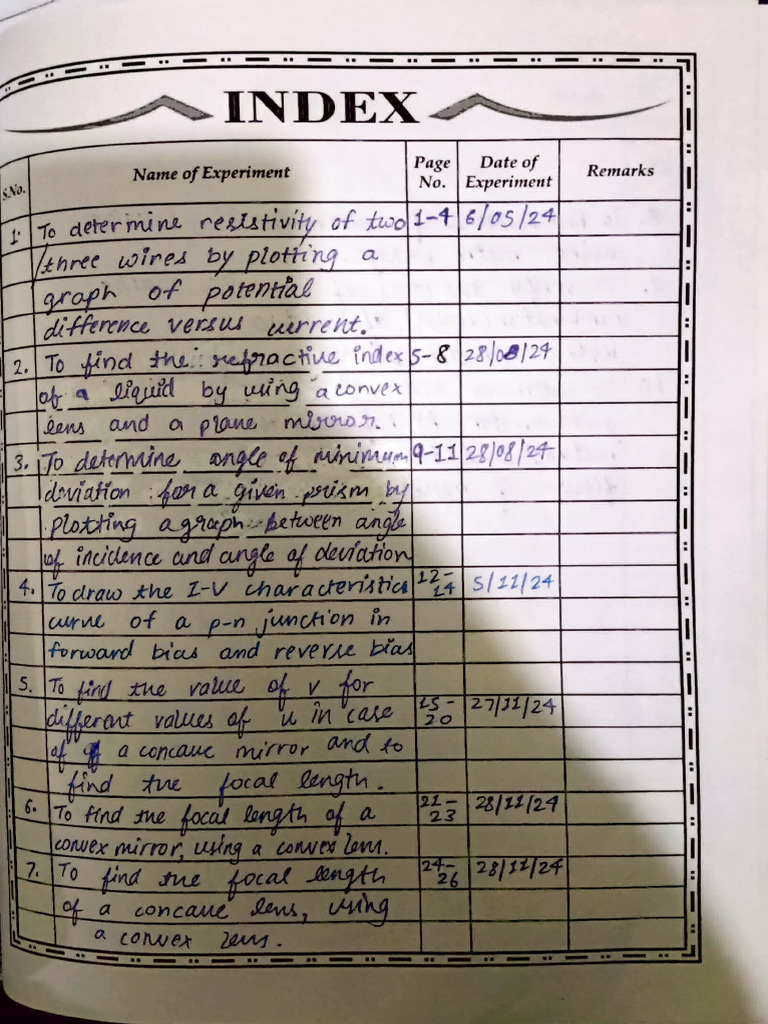 INDEX
S.No. Name of Experiment Page No. Date of Experiment Remarks
1. To determine resistivity of two 1-4 6/05/24
/three wires by plotting a
graph of potential
difference versus current.
2. To find the refractive index 5-8 28/08/24
of a liquid by using a convex
lens and a plane mirror.
3. To determine angle of minimum 9-11 28/08/24
deviation for a given prism by
plotting a graph between angle
of incidence and angle of deviation
4. To draw the I-V characteristics 12-14 5/11/24
curve of a p-n junction in
forward bias and reverse bias
5. To find the value of v for
different values of u in case 15-20 27/11/24
of a concave mirror and to
find the focal length.
6. To find the focal length of a 21-23 28/11/24
convex mirror, using a convex lens.
7. To find the focal length 24-26 28/11/24
of a concave lens, using
a convex lens.